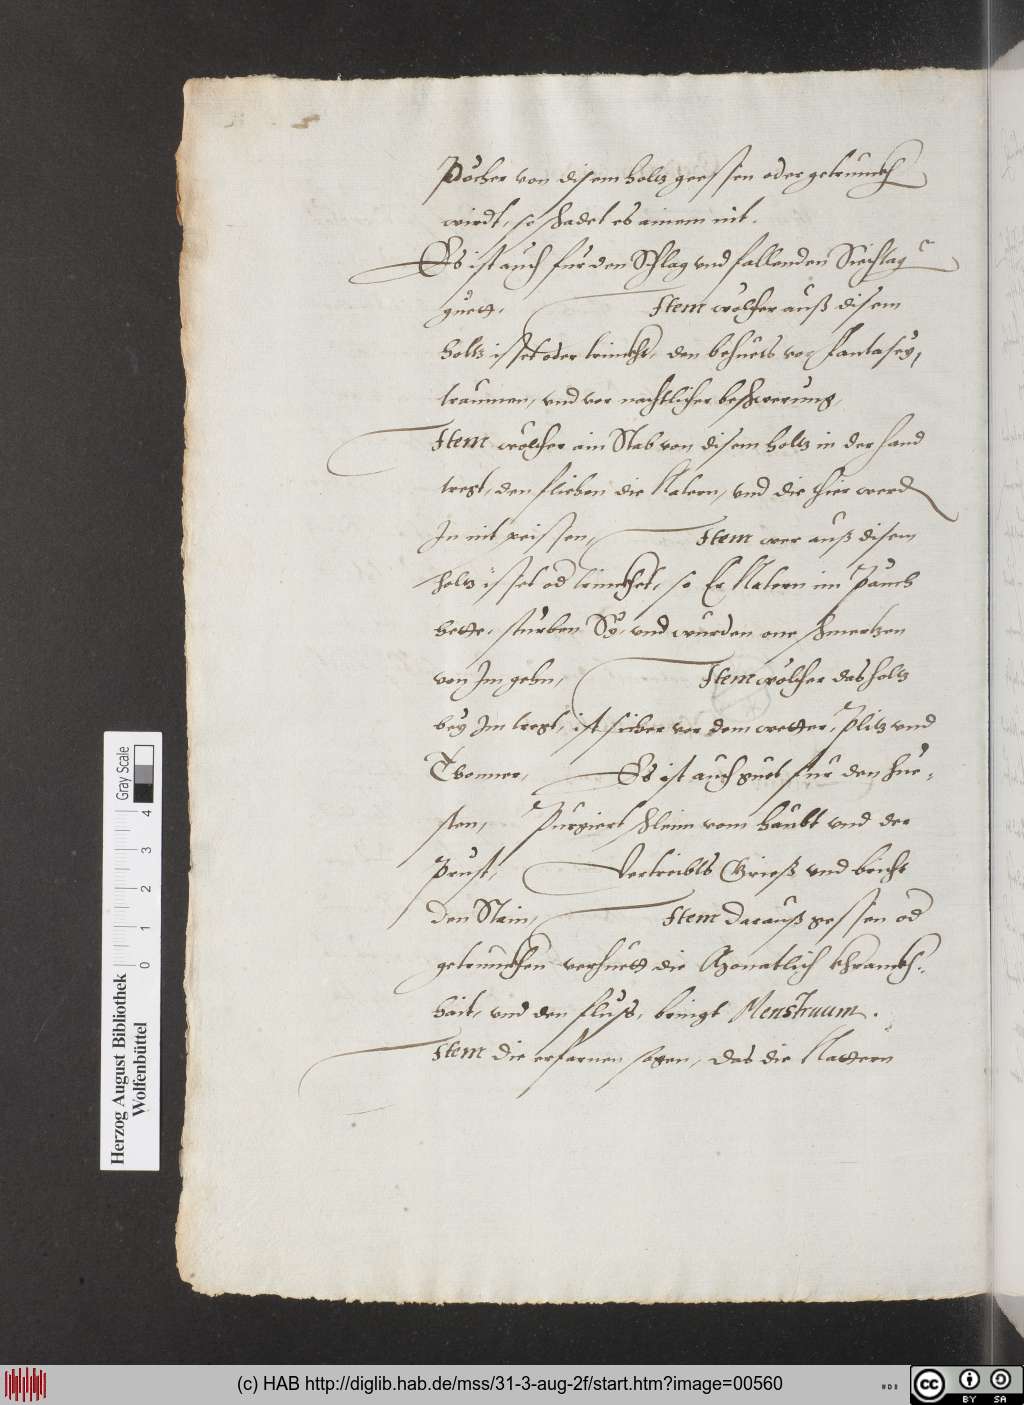 Pöcher von disem holtz geessen oder getrunckh
wirdt, so schadet es ainem nit.
Es ist auch fur den Schlag vnd fallenden Siechtag
guett. Item wölcher auß disem
holtz isset oder trinckht, den behuets vor fantasey,
traumen, vnd vor nachtlicher beschwerung,
Item wölcher ain Stab von disem holtz in der hand
tregt, den fliehen die Natern, vnd die thier werd
In nit peissen, Item wer auß disem
holtz isset od trinckhet, so Er Natern im Pauch
hette, sturben Sy, vnd wurden one schmertzen
von Im gehn, Item wölcher das holtz
bey Im tregt, ist sicher vor dem wetter, Plitz vnd
Thonner, Es ist auch guet fur den hue-
sten, Purgiert schleim vom haubt vnd der
Prust, Vertreibts Grieß vnd bricht
den Stain, Item darauß gessen od
getrunckhen verhuett die Monatlich khranckh-
hait, vnd den fluß, bringt Menstruum.
Item die erfarnen sagen, das die Nattern
Gray Scale
4 3 2 1 0
Herzog August Bibliothek
Wolfenbüttel
(c) HAB http://diglib.hab.de/mss/31-3-aug-2f/start.htm?image=00560
cc BY SA